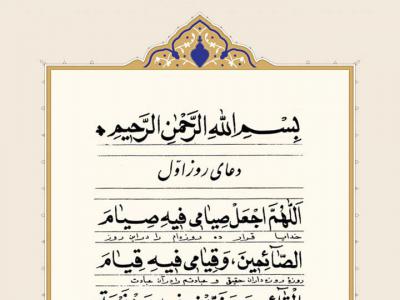 بِسْمِ اللهِ الرَّحْمٰنِ الرَّحِيمِ
دعای روز اوّل
اَللّهُمَّ اجْعَلْ صِيامى فيهِ صِيامَ
خدایا قرار ده روزه‌ام را در این روز
الصّائِمينَ، وَقِيامى فيهِ قِيامَ
روزهٔ روزه داران حقیقی و عبادتم را در آن عبادت